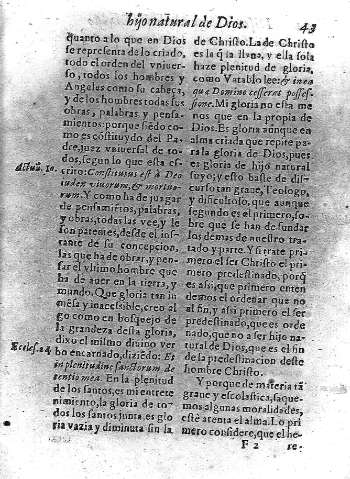 hijo natural de Dios.
43
quanto a lo que en Dios
se representa de lo criado,
todo el orden del vniuer-
so, todos los hombres y
Angeles como su cabeça,
y de los hombres todas sus
obras, palabras y pensa-
mientos: porque siēdo co-
mo es cōstituydo del Pa-
dre, juez vniuersal de to-
dos, segun lo que esta es-
crito: Constitutus est à Deo
iudex viuorum, & mortuo-
rum. Y como ha de juzgar
de pensamiētos, palabras,
y obras, todas las vee, y le
son patentes, desde el ins-
tante de su concepcion,
las que ha de obrar, y pen-
sar el vltimo hombre que
ha de auer en la tierra, y
mundo. Que gloria tan in
mēsa y inacessible, creo al
go como en bosquejo de
la grandeza desta gloria,
dixo el mismo diuino ver
bo encarnado, diziēdo: Et
in plenitudine sanctorum de
tentio mea. En la plenitud
de los santos, es mi entrete
nimiento, la gloria de to-
dos los santos junta es glo
ria vazia y diminuta sin la
Actuū. 10.
Eccles. 24
de Christo. La de Christo
es la q̄ la llena, y ella sola
haze plenitud de gloria,
como Vatablo lee: & in ea
que Domino cesserat posses-
sione. Mi gloria no esta me
nos que en la propia de
Dios. Es gloria aunque en
alma criada que repite pa-
ra la gloria de Dios, pues
es gloria de hijo natural
suyo; y esto baste de dis-
curso tan graue, Teologo,
y dificultoso, que aunque
segundo es el primero, so-
bre que se han de fundar
los demas de nuestro tra-
tado y parte. Y si trate pri-
mero el ser Christo el pri-
mero predestinado, porq̄
es assi, que primero enten
demos el ordenar que no
al fin, y assi primero el ser
predestinado, que es orde
nado, que no a ser hijo na-
tural de Dios, que es el fin
de la predestinacion deste
hombre Christo.
Y porque de materia tā
graue y escolastica, saque-
mos algunas moralidades,
estè atenta el alma. Lo pri
mero considere, que el he-
F 2
re-